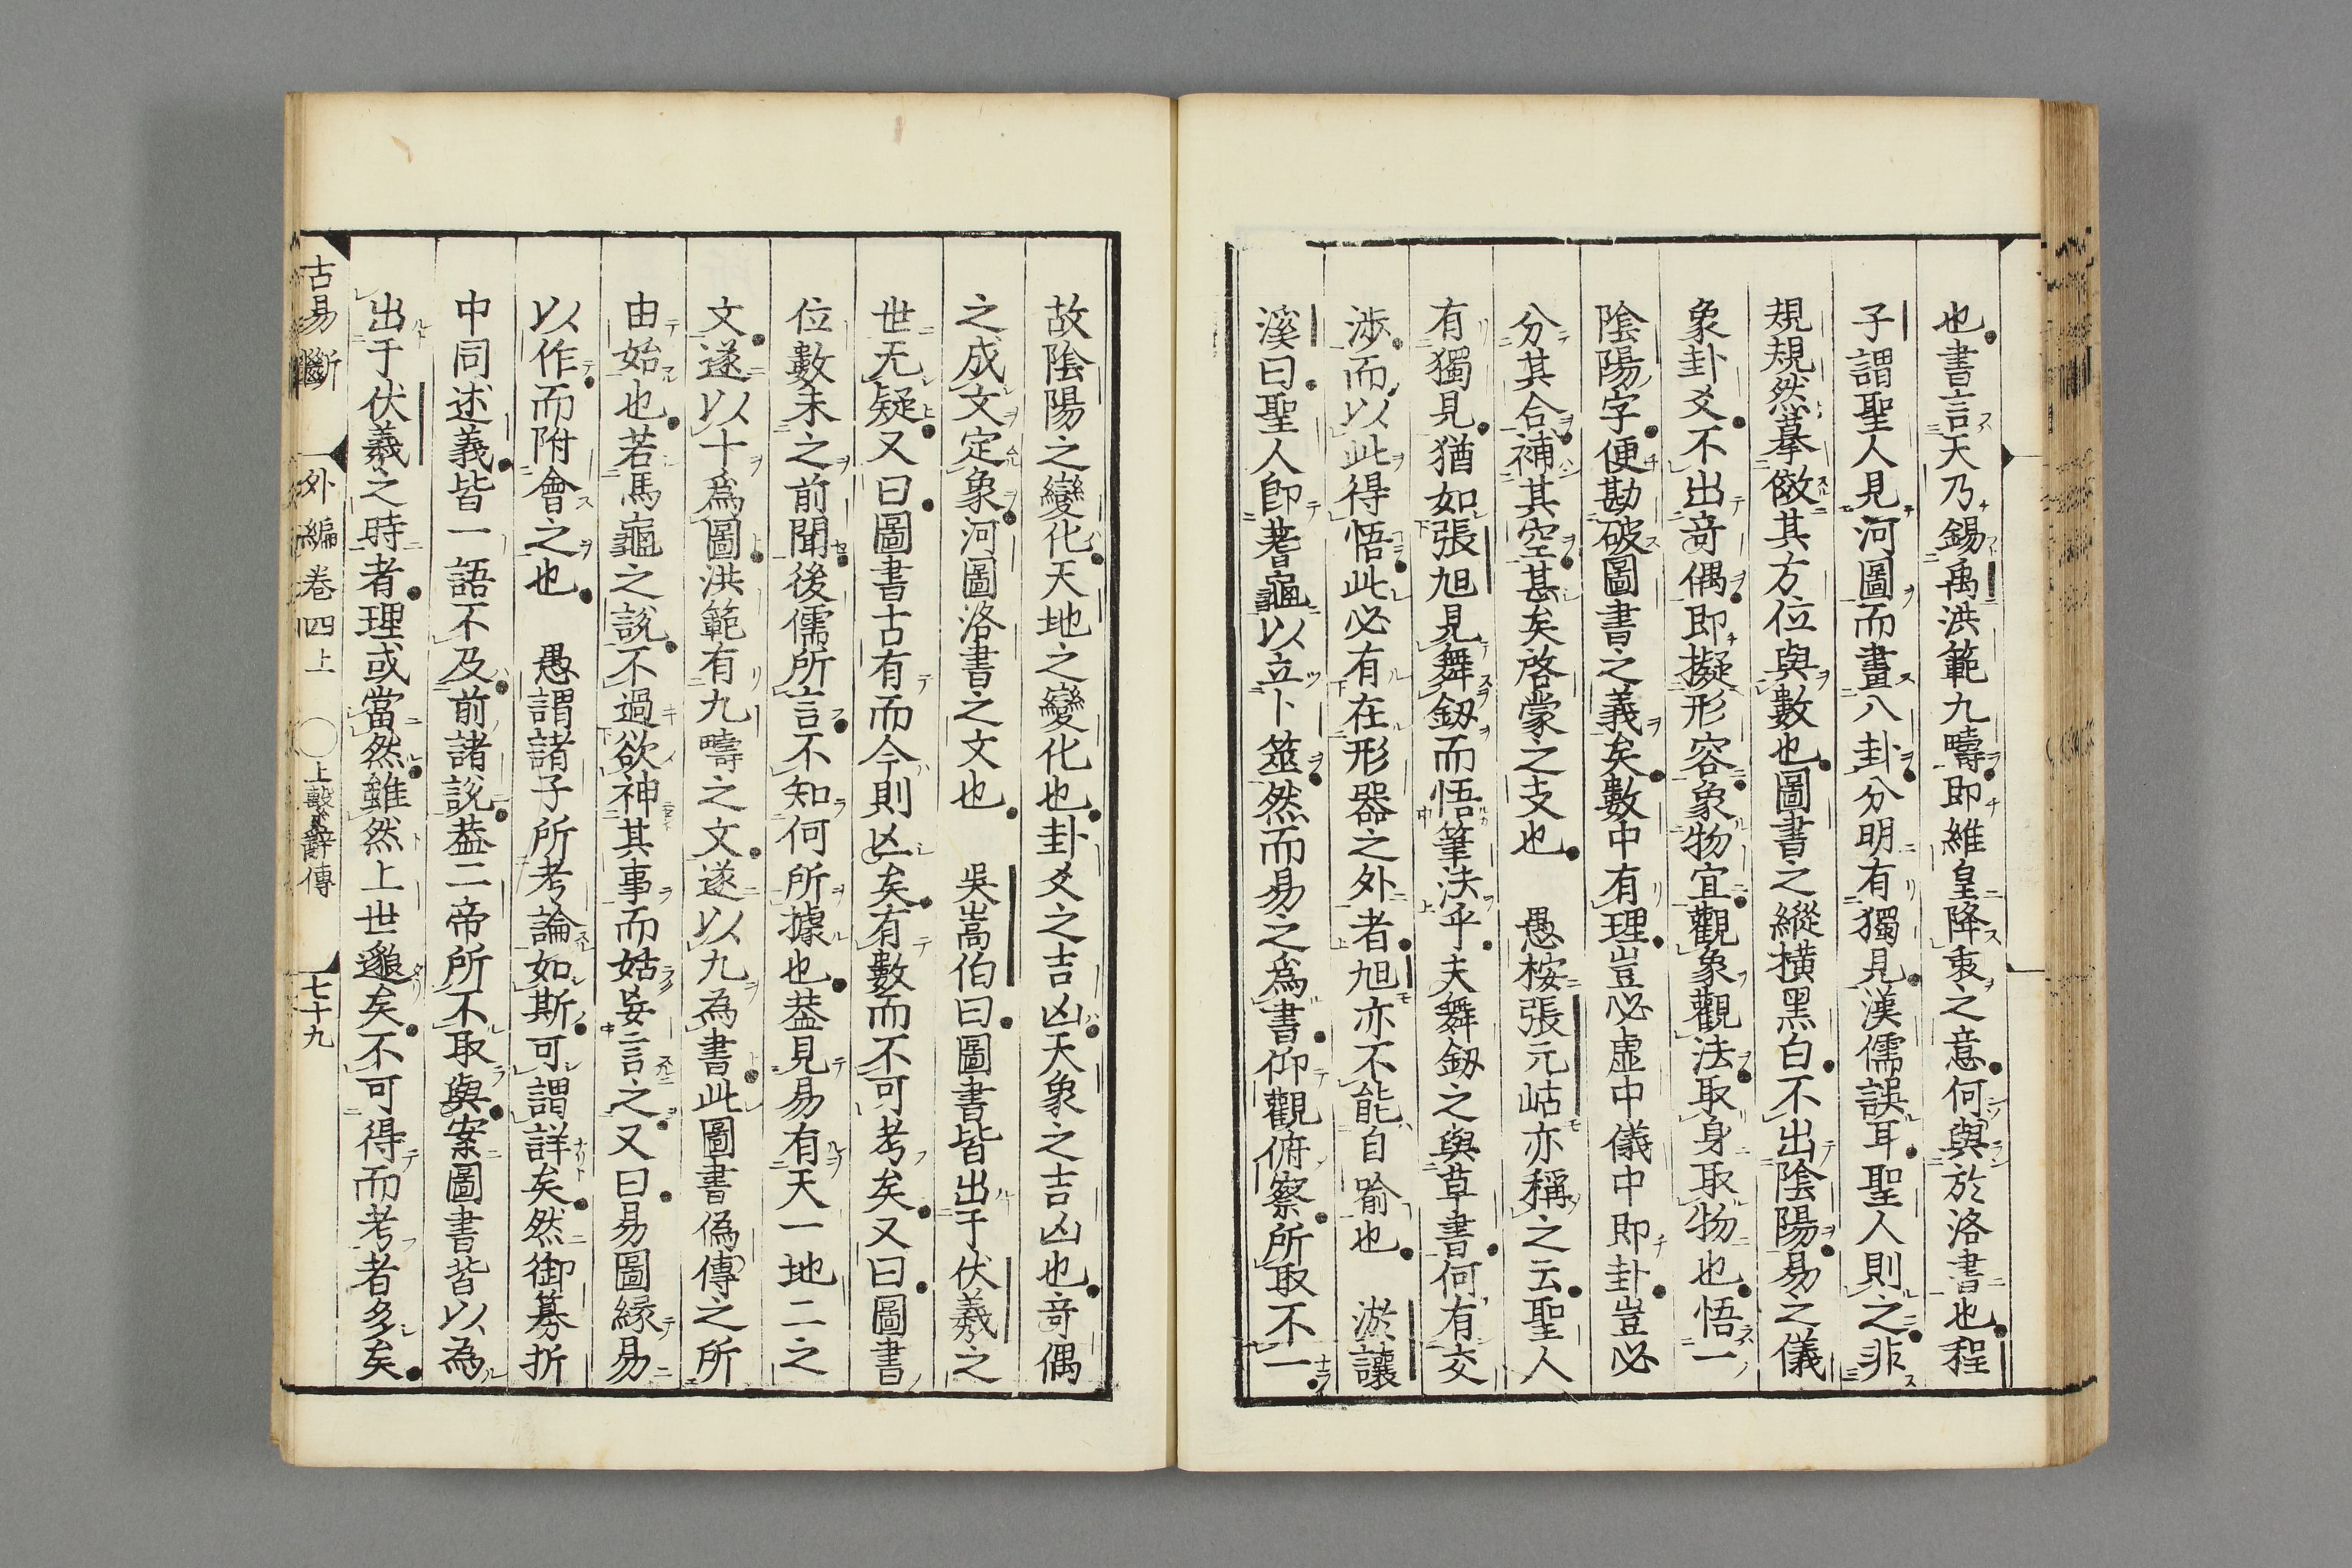 也書言天乃錫禹洪範九疇即維皇降衷之意何與於洛書也程
子謂聖人見河圖而畫八卦分明有獨見漢儒誤耳聖人則之非
規規然摹倣其方位與數也圖書之縱橫黑白不出陰陽易之儀
象卦爻不出竒偶即擬形容象物宜觀象觀法取身取物也悟一
陰陽字便勘破圖書之義矣數中有理豈必虛中儀中即卦豈必
分其合補其空甚矣啓蒙之支也　愚桉張元岵亦稱之云聖人
有獨見猶如張旭見舞釼而悟筆法乎夫舞釼之與草書何有交
渉而以此得悟此必有在形器之外者旭亦不能自喻也　淤讓
溪曰聖人卽蓍龜以立卜筮然而易之為書仰觀俯察所取不一
故陰陽之變化天地之變化也卦爻之吉凶天象之吉凶也竒偶
之成文定象河圖洛書之文也　吳嵩伯曰圖書皆出于伏羲之
世无疑又曰圖書古有而今則亾矣有數而不可考矣又曰圖書
位數未之前聞後儒所言不知何所據也葢見易有天一地二之
文遂以十爲圖洪範有九疇之文遂以九為書此圖書偽傳之所
由始也若馬龜之說不過欲神其事而姑妄言之又曰易圖緣易
以作而附會之也　愚謂諸子所考論如斯可謂詳矣然御纂折
中同述義皆一語不及前諸說葢二帝所不取與案圖書皆以為
出于伏羲之時者理或當然雖然上世邈矣不可得而考者多矣
古易斷　外編卷四上　〇上繫辭傳　七十九